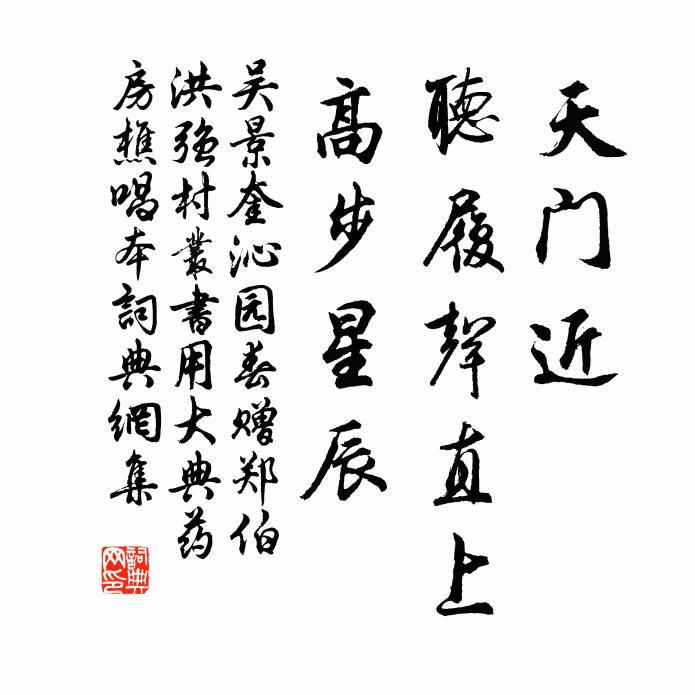 天门近
聽履聲直上
高步星辰
吴景奎沁园春赠郑伯
洪强村叢書用大典药
房樵唱本詞典網集
詞典
网印